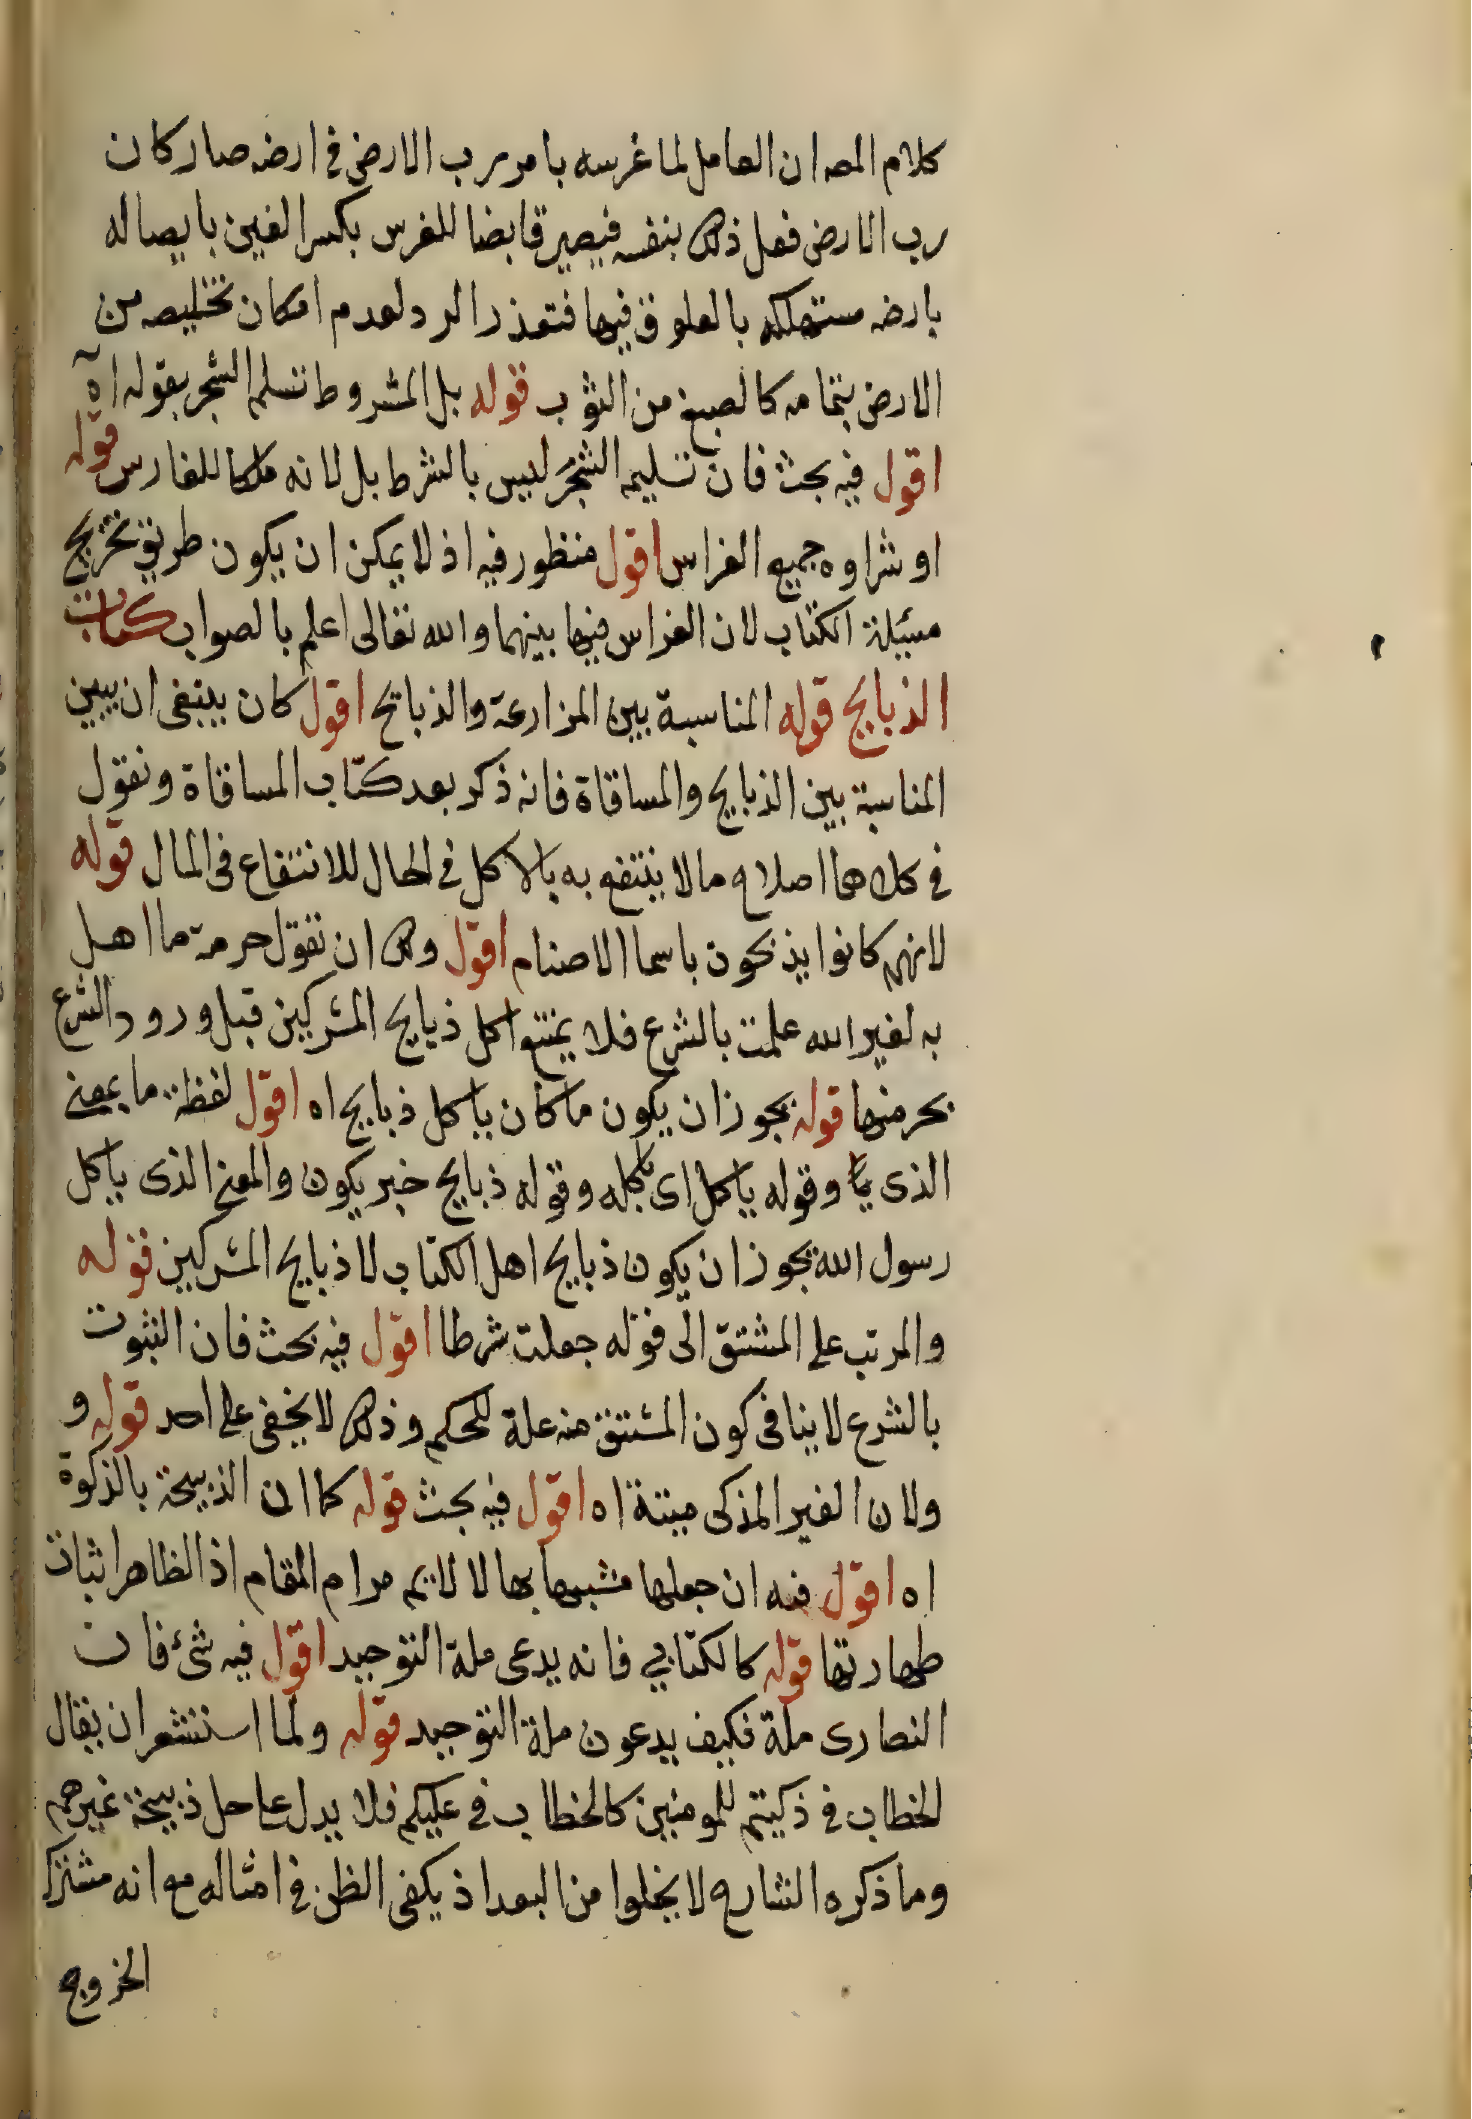 كلام المص ان العامل لما غرسه بامر رب الارض في ارضه صار كان
رب الارض فعل ذلك بنفسه فيصير قابضا للغرس بكسر الغين بايصاله
بارضه مستهلكه بالعلوق فيها فتعذر الرد لعدم امكان تخليصه من
الارض بتمامه كالصبغ من الثوب قوله بل المشروط تسلم الشجر بقوله آه
اقول فيه بحث فان تسليم الشجر ليس بالشرط بل لانه ملكا للغارس قوله
او شراوه جميع الغراس اقول منظور فيه اذ لا يمكن ان يكون طريق تخريج
مسئلة الكتاب لان الغراس فيها بينهما والله تعالى اعلم بالصواب كتاب
الذبايح قوله المناسبة بين المزارعة والذبائح اقول كان ينبغى ان يبين
المناسبة بين الذبايح والمساقاة فانه ذكر بعد كتاب المساقاة ونقول
في كلاهما اصلاح مالا ينتفع به بالاكل في الحال للانتفاع فى المال قوله
لانهم كانوا يذبحون باسما الاصنام اقول ولك ان تقول حرمة ما اهل
به لغير الله علمت بالشرع فلا يمتنع اكل ذبايح المشركين قبل ورود الشرع
بحرمتها قوله يجوز ان يكون ما كان ياكل ذبايح اه اقول لفظة ما بمعنى
الذى وقوله ياكل اى ياكله وقوله ذبايح خبر يكون والمعنى الذى ياكل
رسول الله يجوز ان يكون ذبايح اهل الكتاب لا ذبايح المشركين قوله
والمرتب على المشتق الى قوله جعلت شرطا اقول فيه بحث فان الثبوت
بالشرع لا ينافى كون المشتق منه علة للحكم وذلك لا يخفى على احد قوله و
ولان الغير المذكى ميتة اه اقول فيه بحث قوله كما ان الذبيحة بالذكوة
اه اقول فيه ان جعلها مشبها بها لا يلايم مرام المقام اذ الظاهر اثبات
طهارتها قوله كالكتابي فانه يدعى ملة التوحيد اقول فيه شئ فان
النصارى ملة فكيف يدعون ملة التوحيد قوله ولما استشعر ان يقال
الخطاب في ذكيتم للمومنين كالخطاب في عليكم فلا يدل على حل ذبيحة غيرهم
وما ذكره الشارح لا يخلوا من البعد اذ يكفى الظن في امثاله مع انه مشترك
الخروج